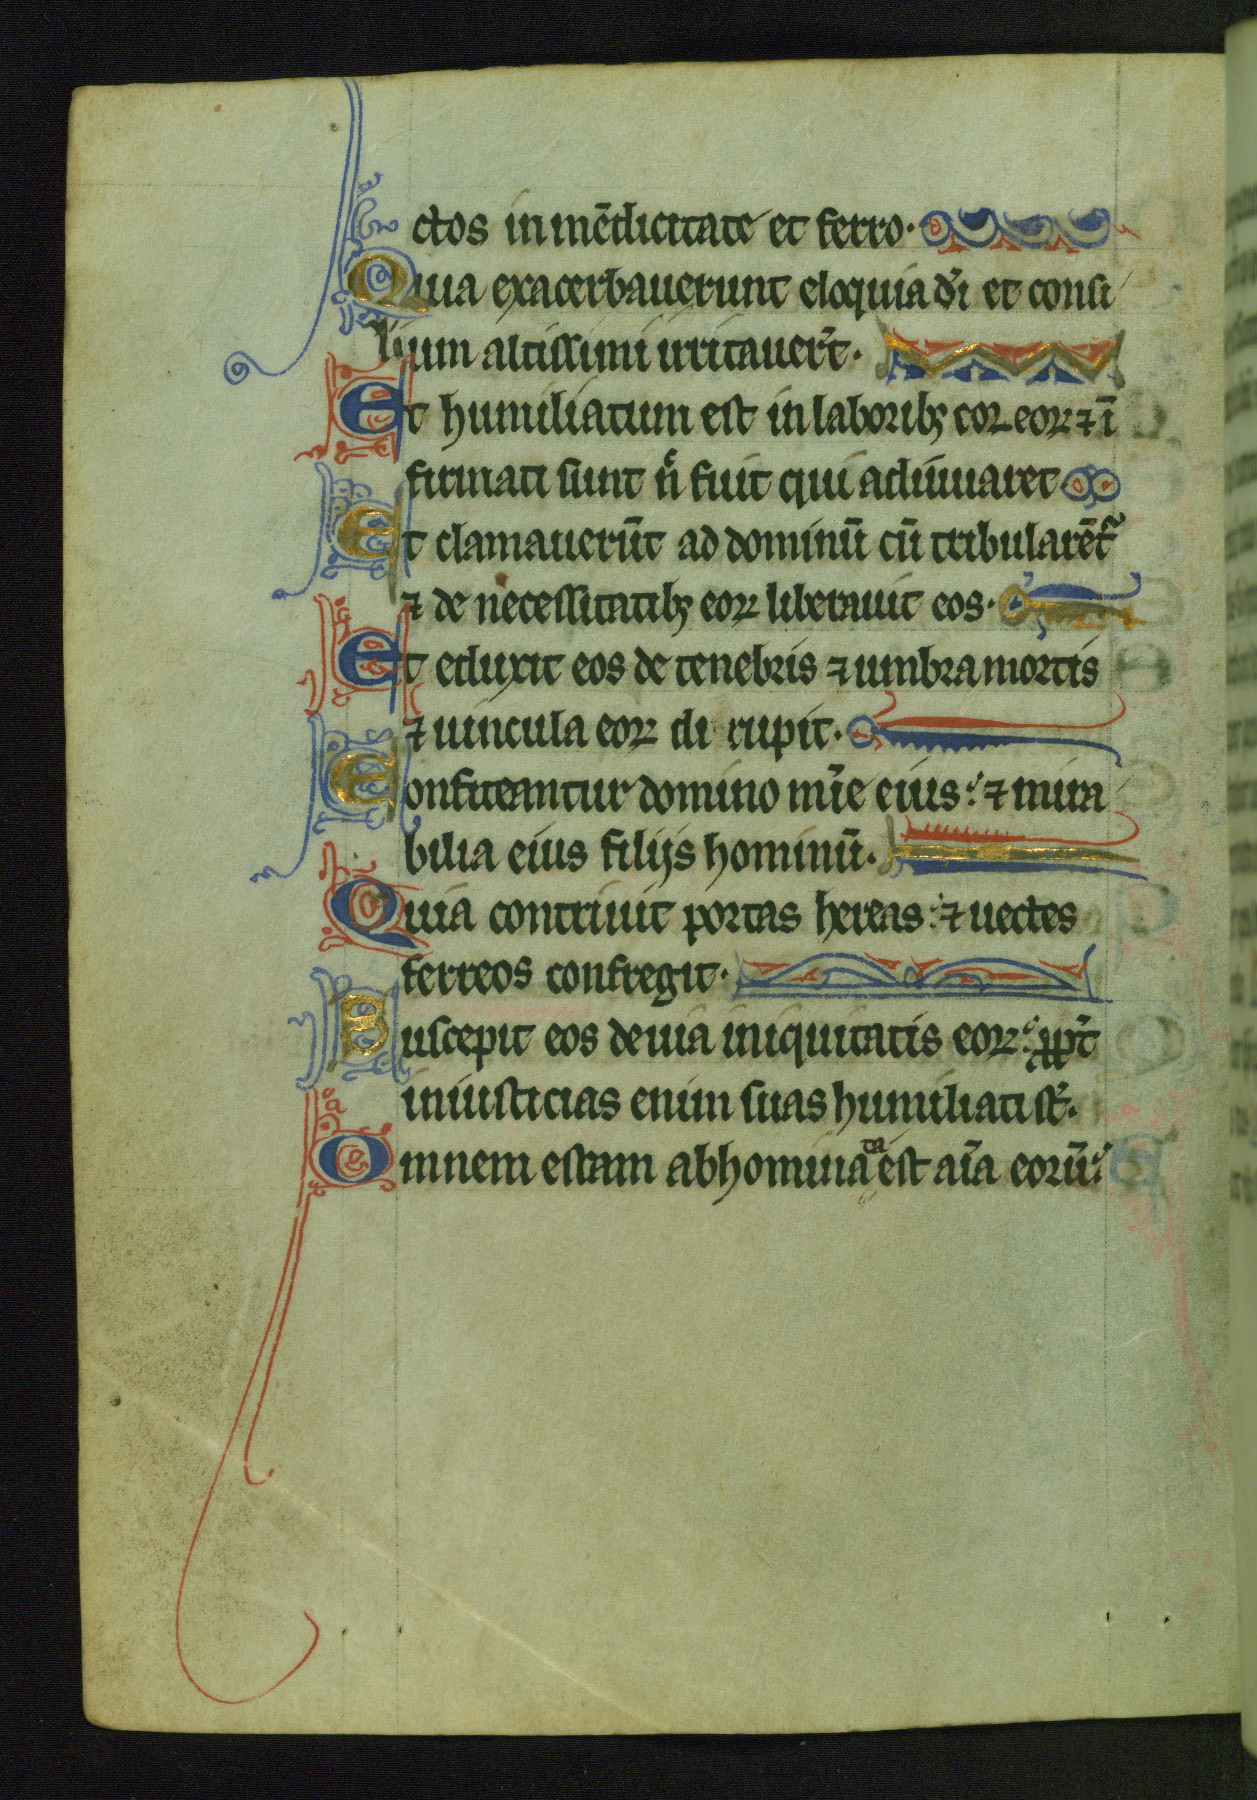 ctos in mēdicitate et ferro·
Quia exacerbauerunt eloquia dī et consi
lium altissimi irritauer̄t·
Et humiliatum est in laboribꝫ cor eoꝝ ⁊ ī
firmati sunt n̄ fuit qui adiuuaret
Et clamauerūt ad dominū cū tribularēt᷑
⁊ de necessitatibꝫ eoꝝ liberauit eos·
Et eduxit eos de tenebris ⁊ umbra mortis
⁊ uincula eoꝝ di rupit·
Confiteantur domino mīe eius: ⁊ mira
bilia eius filijs hominū·
Quia contriuit portas hereas: ⁊ uectes
ferreos confregit·
Suscepit eos de uia iniquitatis eoꝝ: ꝓpt̄
iniusticias enim suas humiliati st̄·
Omnem escam abhominata est aīa eorū: